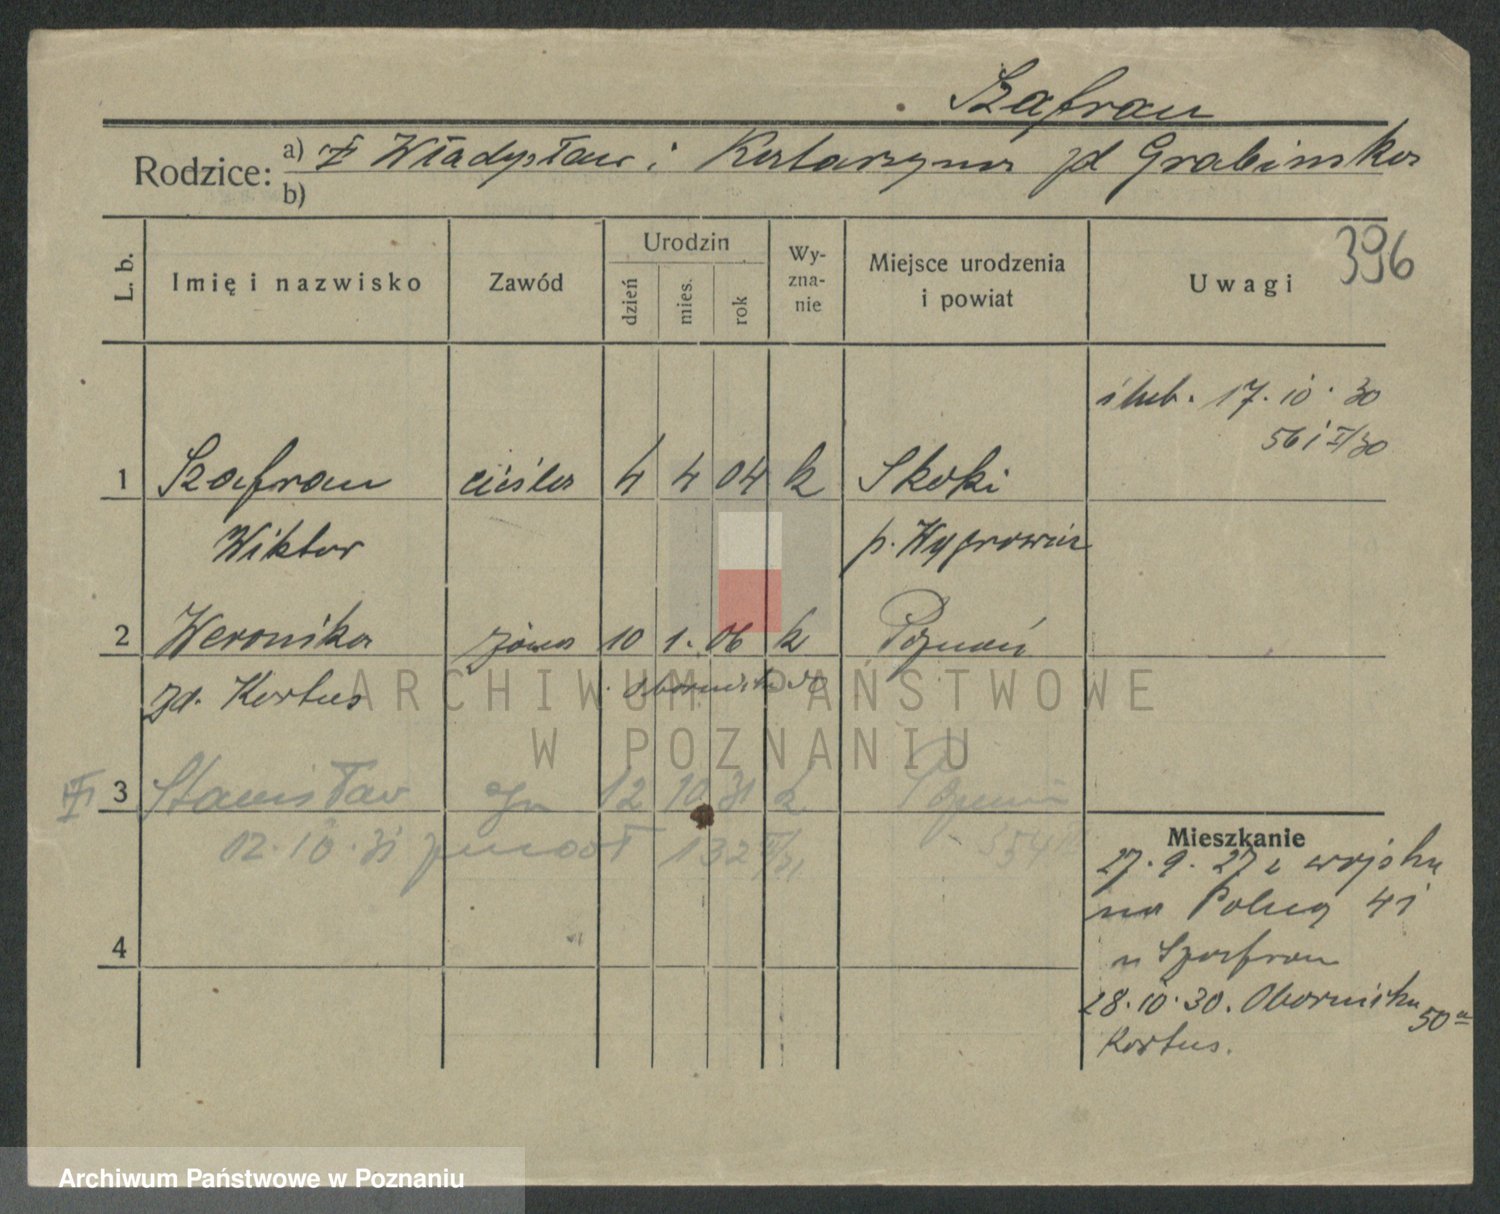 Szafran
Rodzice: a) Władysław i Katarzyna zd Grabinska
b)
396
L. b. Imię i nazwisko Zawód Urodzin dzień mies. rok Wy-zna-nie Miejsce urodzenia i powiat Uwagi
ślub. 17. 10. 30
1 Szafran cieśla 4 4 04 k Skoki
Wiktor p. Wągrowiec
2 Weronika żona 10 1. 06 k Poznań
zd. Kortus Obornicka 50
3 Stanisław syn 12 10 31 k Poznań
12. 10. 31 132
Mieszkanie
27. 9. 27 z wojska
na Polną 41
4
u Szafran
28. 10. 30. Obornicka 50a
Kortus.
ARCHIWUM PAŃSTWOWE
W POZNANIU
Archiwum Państwowe w Poznaniu